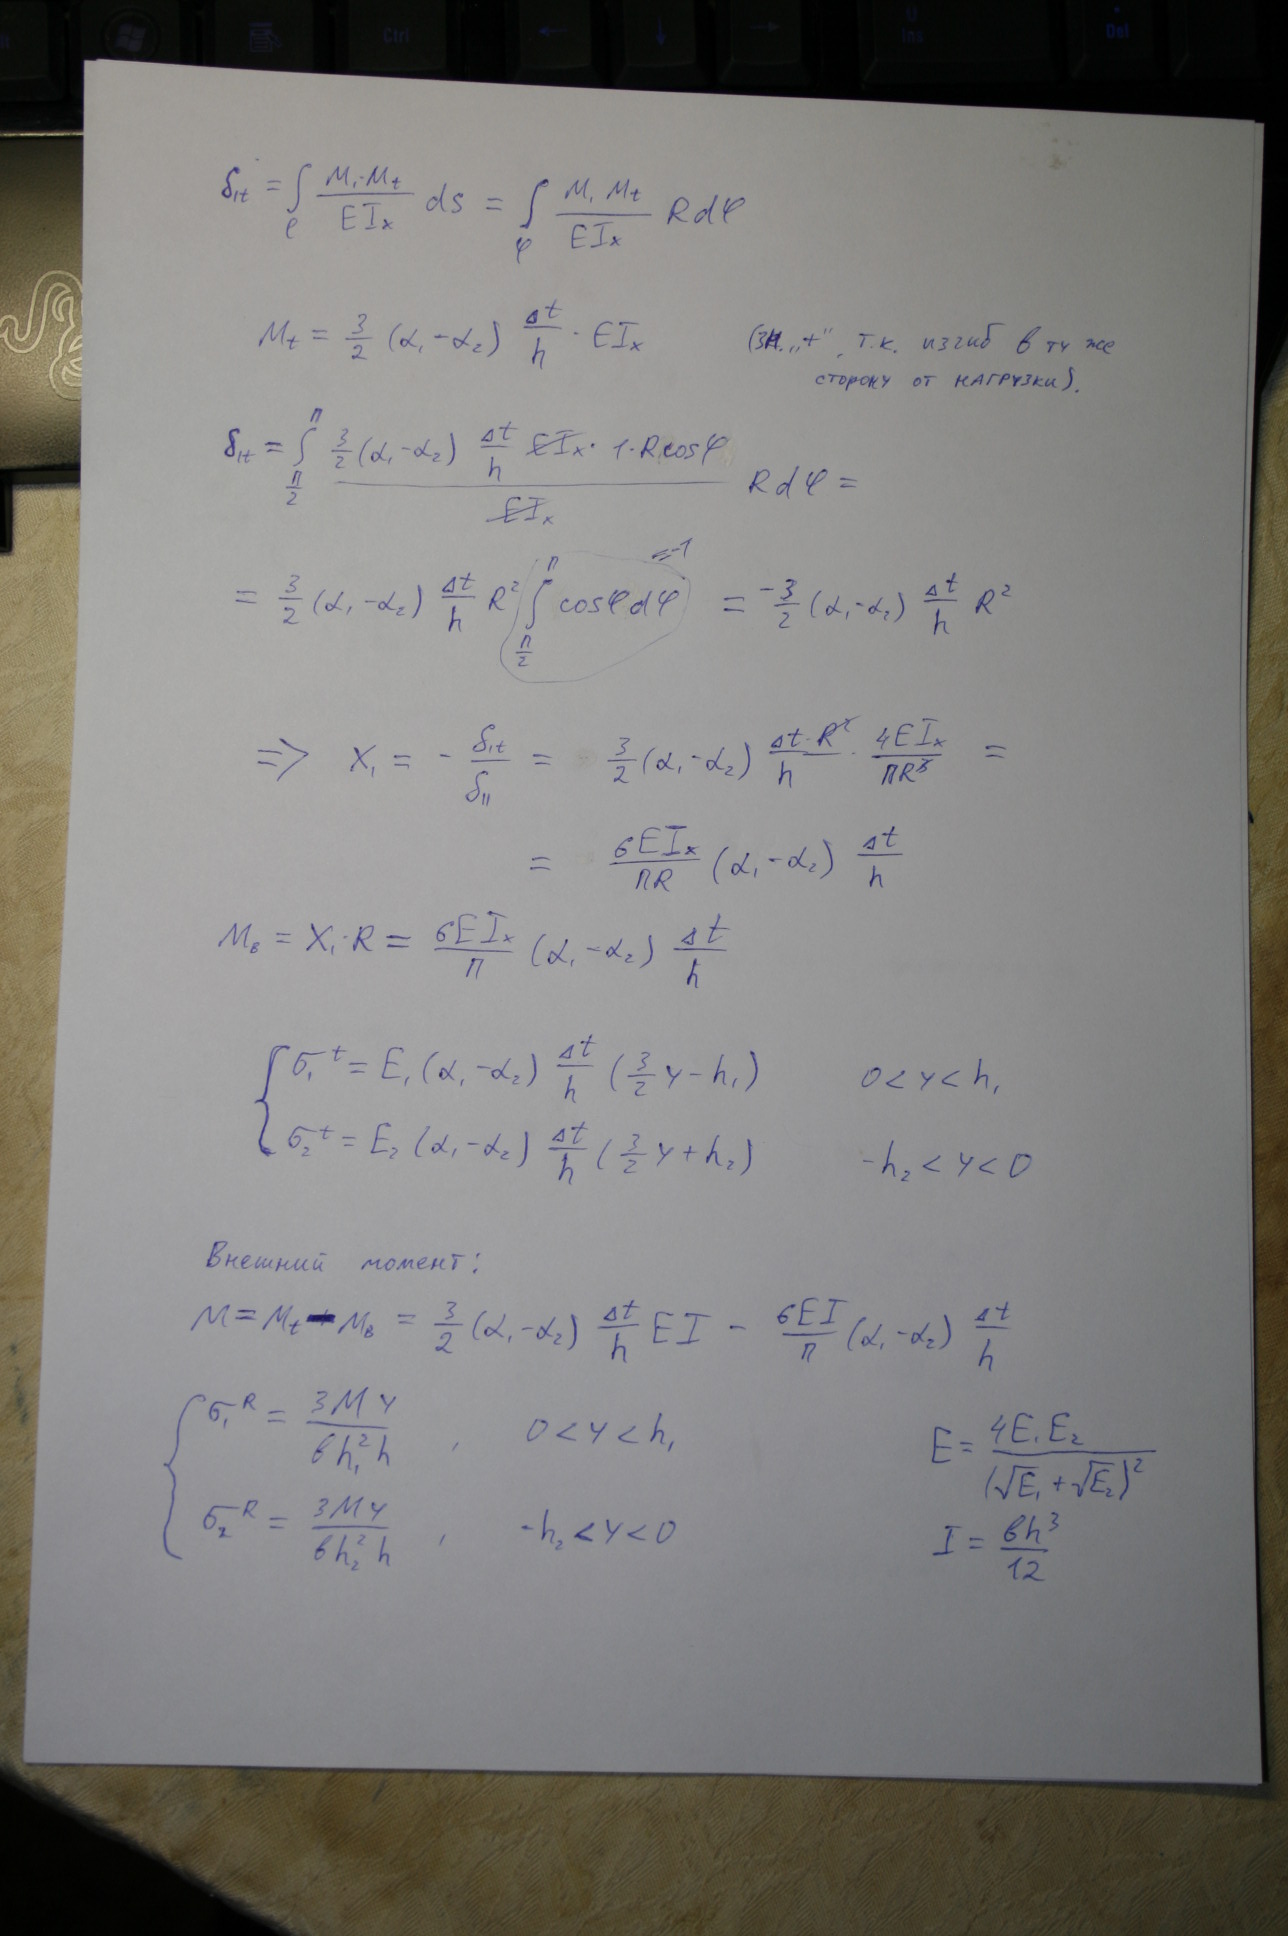 Ctrl
Ins
Del
δ₁t = ∫φ (M₁·Mt)/(EIx) ds = ∫φ (M₁ Mt)/(EIx) R dφ
Mt = 3/2 (α₁-α₂) Δt/h · EIx (зн. „+", т.к. изгиб в ту же
сторону от нагрузки).
δ₁t = ∫_{π/2}^{π} (3/2 (α₁-α₂) Δt/h EIx · 1·R cosφ)/(EIx) R dφ =
= 3/2 (α₁-α₂) Δt/h R² ∫_{π/2}^{π} cosφ dφ =-1 = -3/2 (α₁-α₂) Δt/h R²
⇒ X₁ = - δ₁t/δ₁₁ = 3/2 (α₁-α₂) Δt·R²/h · 4EIx/πR³ =
= 6EIx/πR (α₁-α₂) Δt/h
Mв = X₁·R = 6EIx/π (α₁-α₂) Δt/h
σ₁ᵗ = E₁ (α₁-α₂) Δt/h (3/2 y - h₁) 0 < y < h₁
σ₂ᵗ = E₂ (α₁-α₂) Δt/h (3/2 y + h₂) -h₂ < y < 0
Внешний момент:
M = Mt - Mв = 3/2 (α₁-α₂) Δt/h EI - 6EI/π (α₁-α₂) Δt/h
σ₁ᴿ = 3My/(вh₁²h) , 0 < y < h₁ E = 4E₁E₂/(√E₁ + √E₂)²
σ₂ᴿ = 3My/(вh₂²h) , -h₂ < y < 0 I = вh³/12